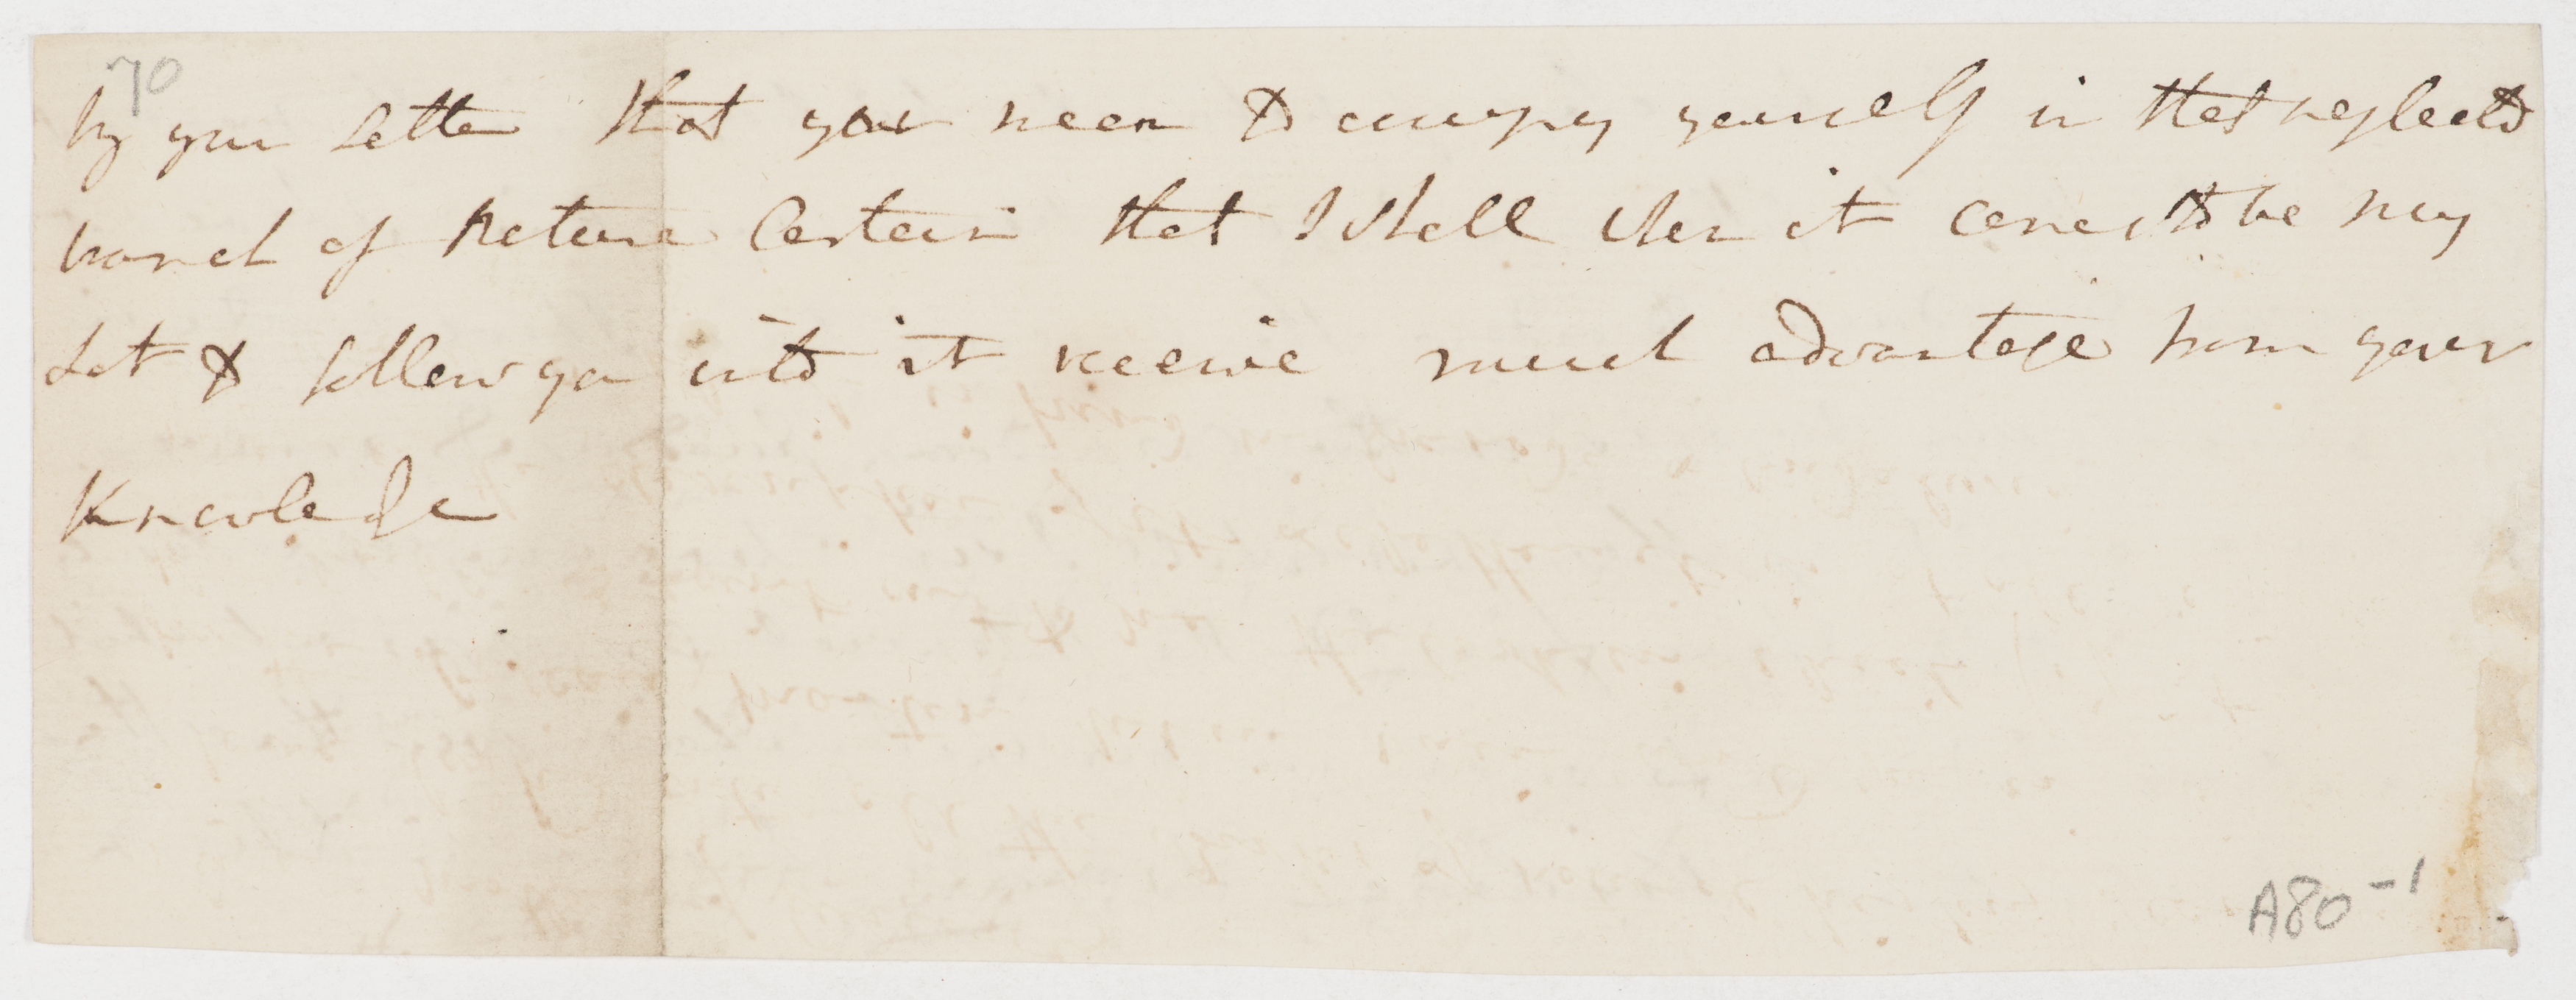 70
by your Letter that you mean to occupy yourself in that neglectd
branch of Nature Certain that I shall when it comes to be my
Lot to follow you into it receive much advantage from your
Knowledge
A80-1